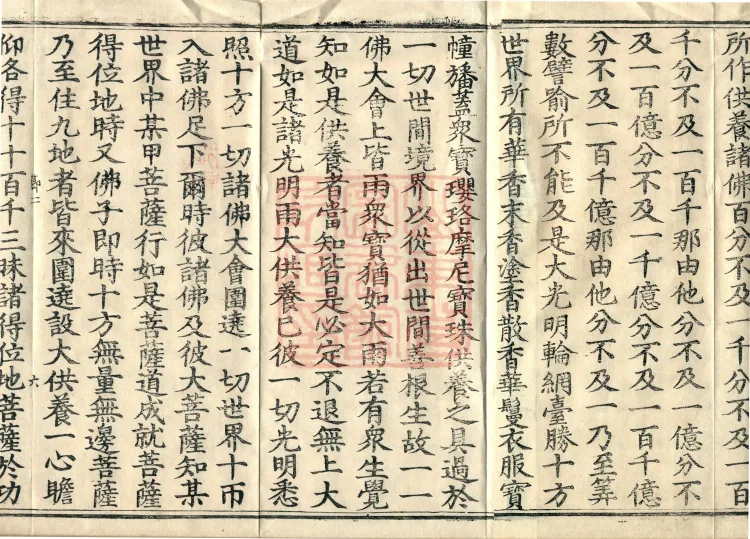 所作供養諸佛百分不及一千分不及一百
千分不及一百千那由他分不及一億分不
及一百億分不及一千億分不及一百千億
分不及一百千億那由他分不及一乃至筭
數譬喻所不能及是大光明輪網臺勝十方
世界所有華香末香塗香散香華鬘衣服寶
幢旛蓋衆寶瓔珞摩尼寶珠供養之具過於
一切世間境界以從出世間善根生故一一
佛大會上皆雨衆寶猶如大雨若有衆生覺
知如是供養者當知皆是必定不退無上大
道如是諸光明雨大供養已彼一切光明悉
照十方一切諸佛大會圍遶一切世界十帀
入諸佛足下爾時彼諸佛及彼大菩薩知某
世界中某甲菩薩行如是菩薩道成就菩薩
得位地時又佛子即時十方無量無邊菩薩
乃至住九地者皆來圍遶設大供養一心瞻
六
仰各得十十百千三昧諸得位地菩薩於功